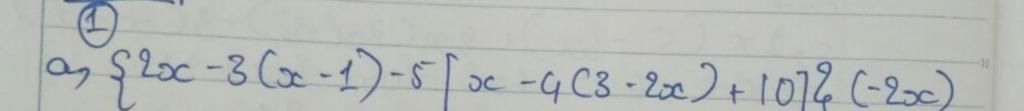 1
a, {2x - 3(x - 1) - 5[x - 4(3 - 2x) + 10]}(-2x)